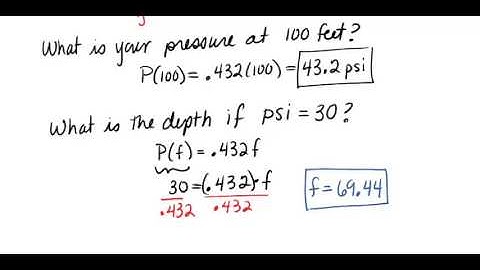 What is your pressure at 100 feet?
P(100) = .432(100) = 43.2 psi
What is the depth if psi = 30?
P(f) = .432f
30 = (.432)·f
.432 .432
f = 69.44